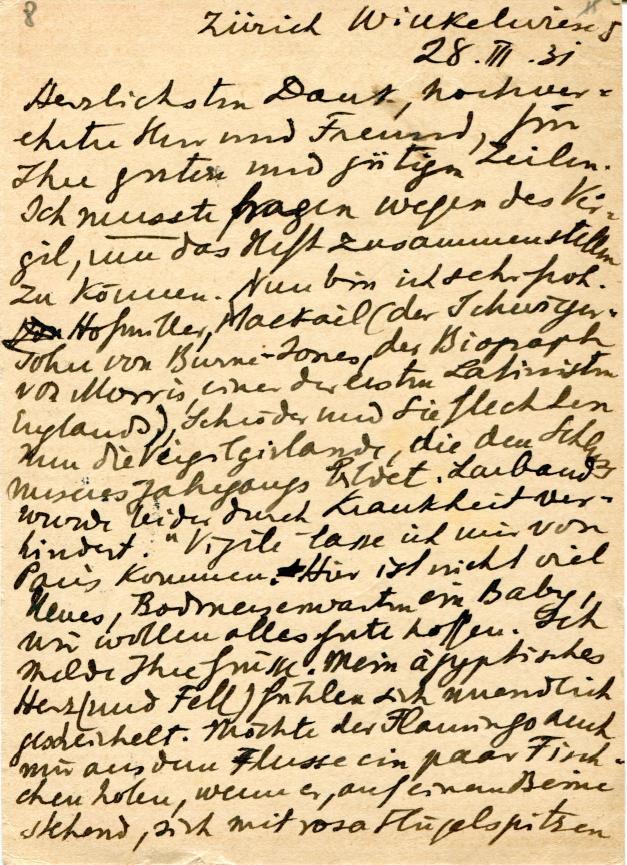 8
Zürich Winkelwiese 5
28. III. 31
Herzlichsten Dank, hochver-
ehrter Herr und Freund, für
Ihre guten und gütigen Zeilen.
Ich musste fragen wegen des Vir-
gil, um das Heft zusammenstellen
zu können. Nun bin ich sehr froh.
Hofmiller, Mackail (der Schwieger-
sohn von Burne-Jones, der Biograph
von Morris, einer der ersten Latinisten
Englands), Schröder und Sie flechten
nun die Virgilgirlande, die den Schluss
unseres Jahrgangs bildet. Lauband
wurde leider durch Krankheit ver-
hindert. "Vigile" lasse ich mir von
Paris kommen. Hier ist nicht viel
Neues, Bodmers erwarten ein Baby,
wir wollen alles gute hoffen. Ich
melde Ihre Grüsse. Mein ägyptisches
Herz (und Fell) fühlen sich unendlich
gestreichelt. Möchte der Flamingo auch
mir aus dem Flusse ein paar Fisch-
chen holen, wenn er, auf einem Beine
stehend, sich mit rosa Flügelspitzen